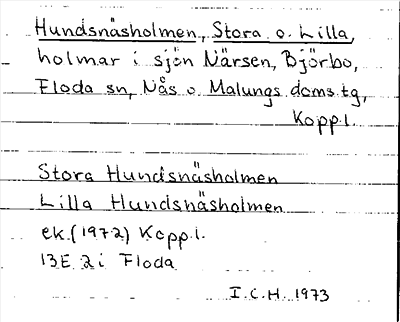 Hundsnäsholmen, Stora o. Lilla,
holmar i sjön Närsen, Björbo,
Floda sn, Nås o. Malungs doms.tg,
Kopp.l.
Stora Hundsnäsholmen
Lilla Hundsnäsholmen
ek. (1972) Kopp.l.
13E 2i Floda
I.C.H. 1973